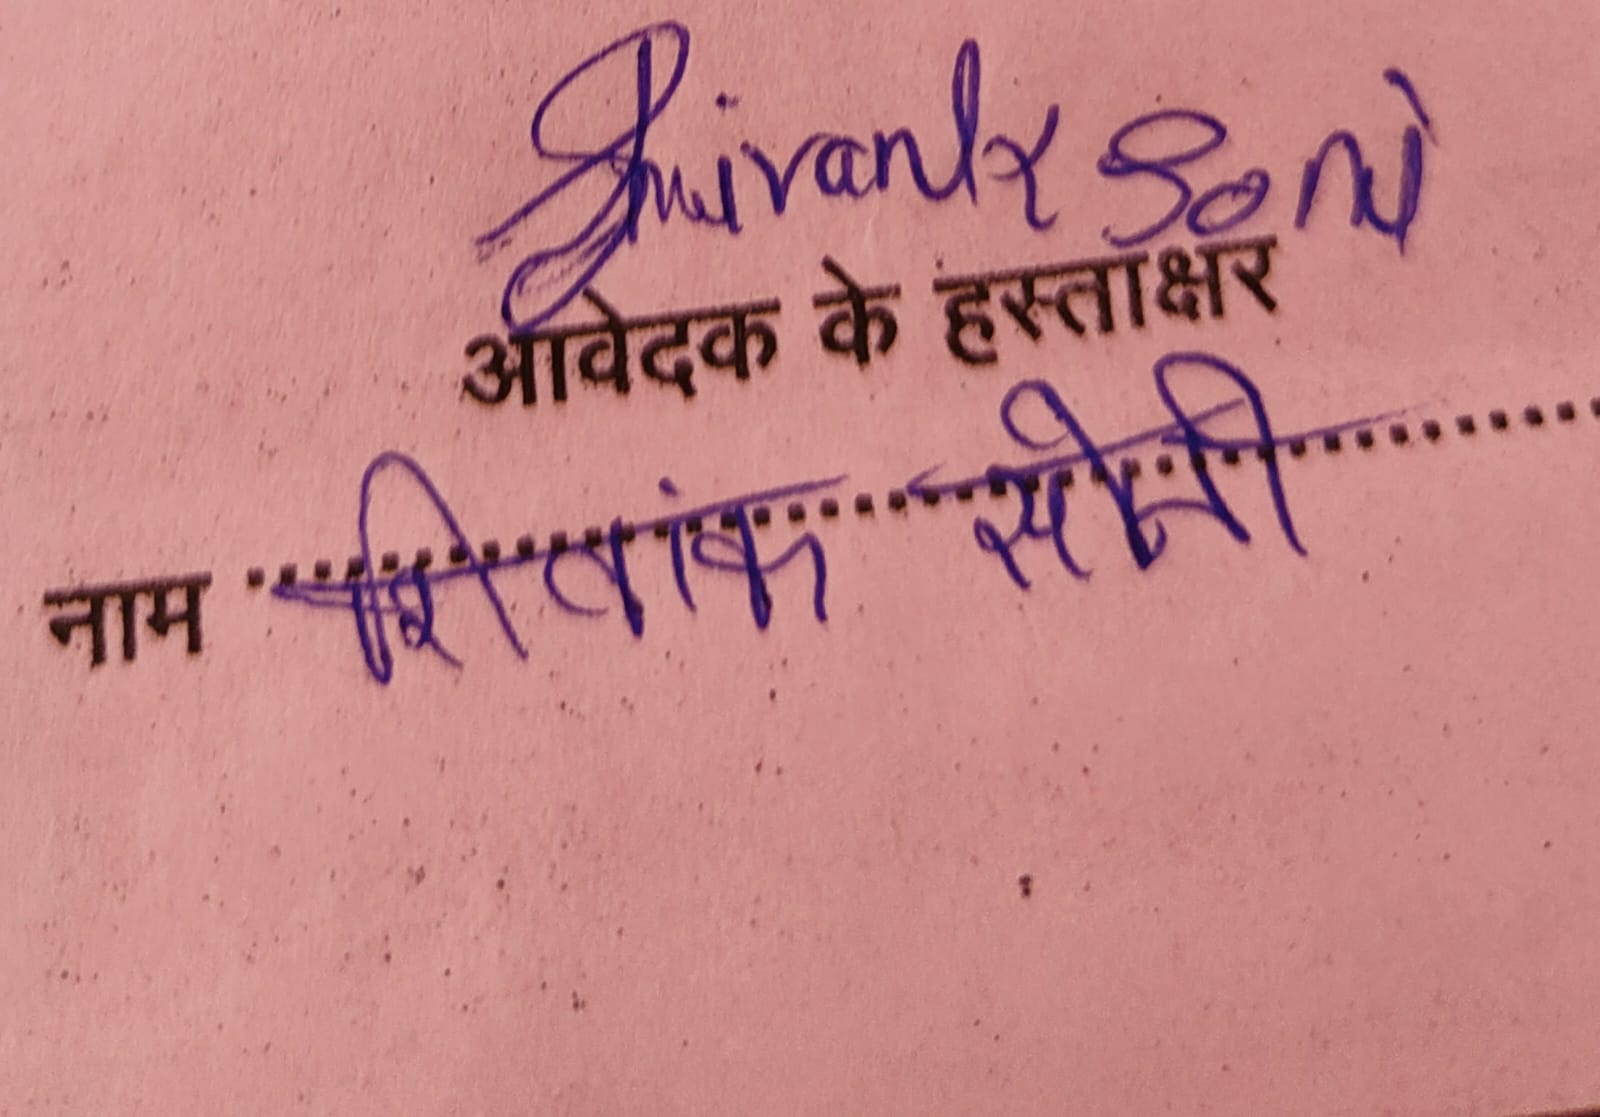 Shivank Soni
आवेदक के हस्ताक्षर
नाम शिवांक सोनी